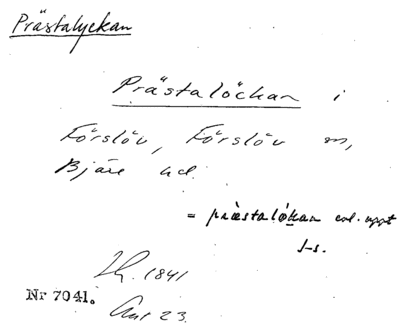 Prästalyckan
Prästalöckan i
Förslöv, Förslöv sn,
Bjäre hd.
= præstalökan enl. uppt
J-s.
1841
Nr 7041.
23.